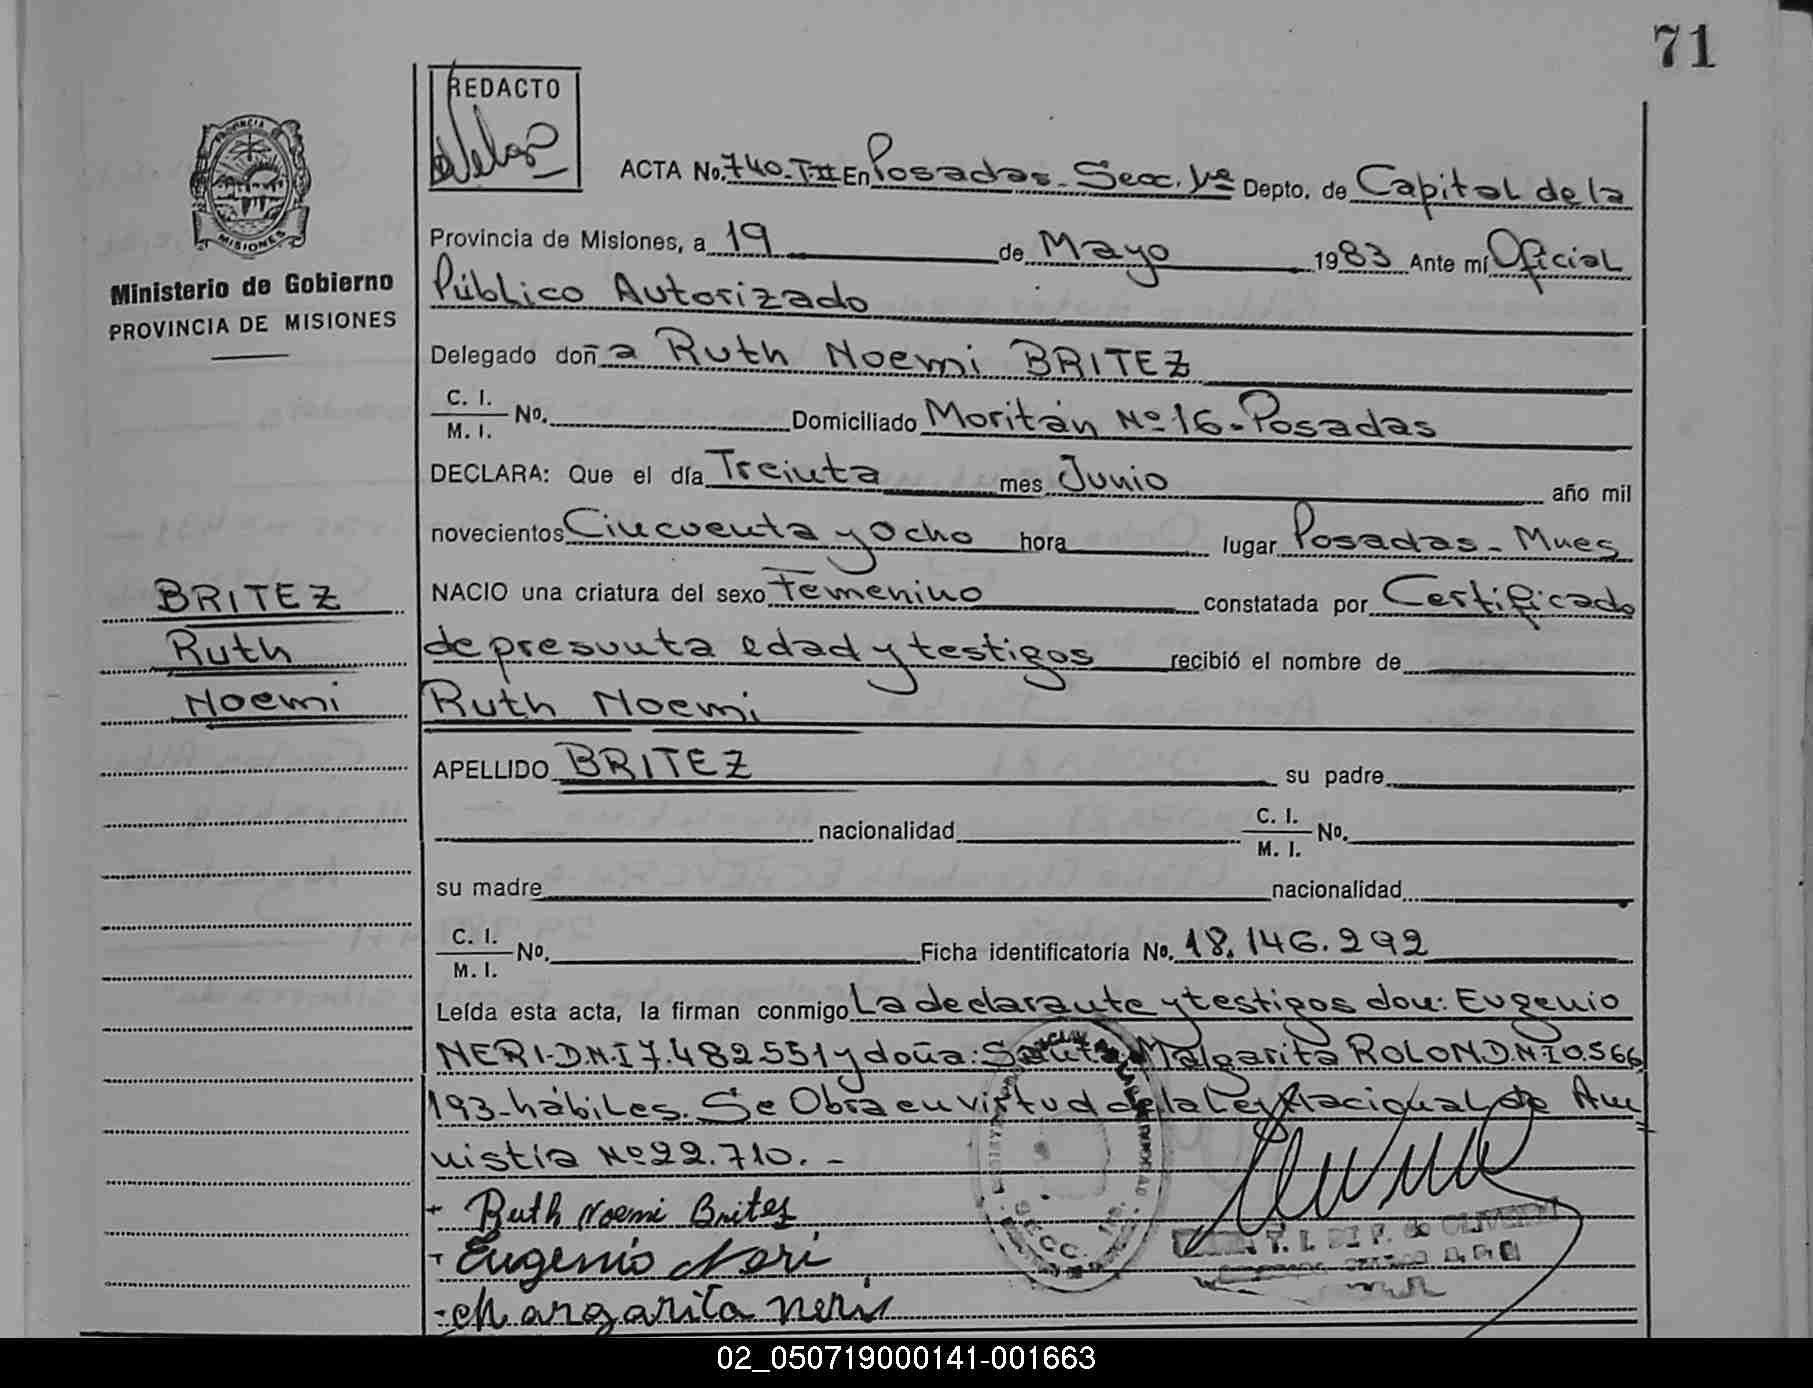 71
REDACTO
PROVINCIA
MISIONES
Ministerio de Gobierno
PROVINCIA DE MISIONES
ACTA No. 740-T-II En Posadas - Secc. 1ª Depto. de Capital de la
Provincia de Misiones, a 19 de Mayo 1983 Ante mí Oficial
Público Autorizado
Delegado doña Ruth Noemi BRITEZ
C. I.
M. I. No. Domiciliado Moritán Nº 16 - Posadas
DECLARA: Que el día Treinta mes Junio año mil
novecientos Cincuenta y Ocho hora lugar Posadas - Mnes
NACIO una criatura del sexo Femenino constatada por Certificado
de presunta edad y testigos recibió el nombre de
Ruth Noemi
BRITEZ
Ruth
Noemi
APELLIDO BRITEZ su padre
nacionalidad C. I.
M. I. No.
su madre nacionalidad
C. I.
M. I. No. Ficha identificatoria No. 18.146.292
Leída esta acta, la firman conmigo La declarante y testigos don: Eugenio
NERI-D.N.I 7.482.551 y doña: Santa Malgarita ROLON.D.N.I 0.566
193-hábiles. Se Obra en virtud de la Ley Nacional de Am
nistía Nº 22.710. -
Ruth Noemi Britez
Eugenio Neri
Margarita neris
SECC. 1ª
02_050719000141-001663